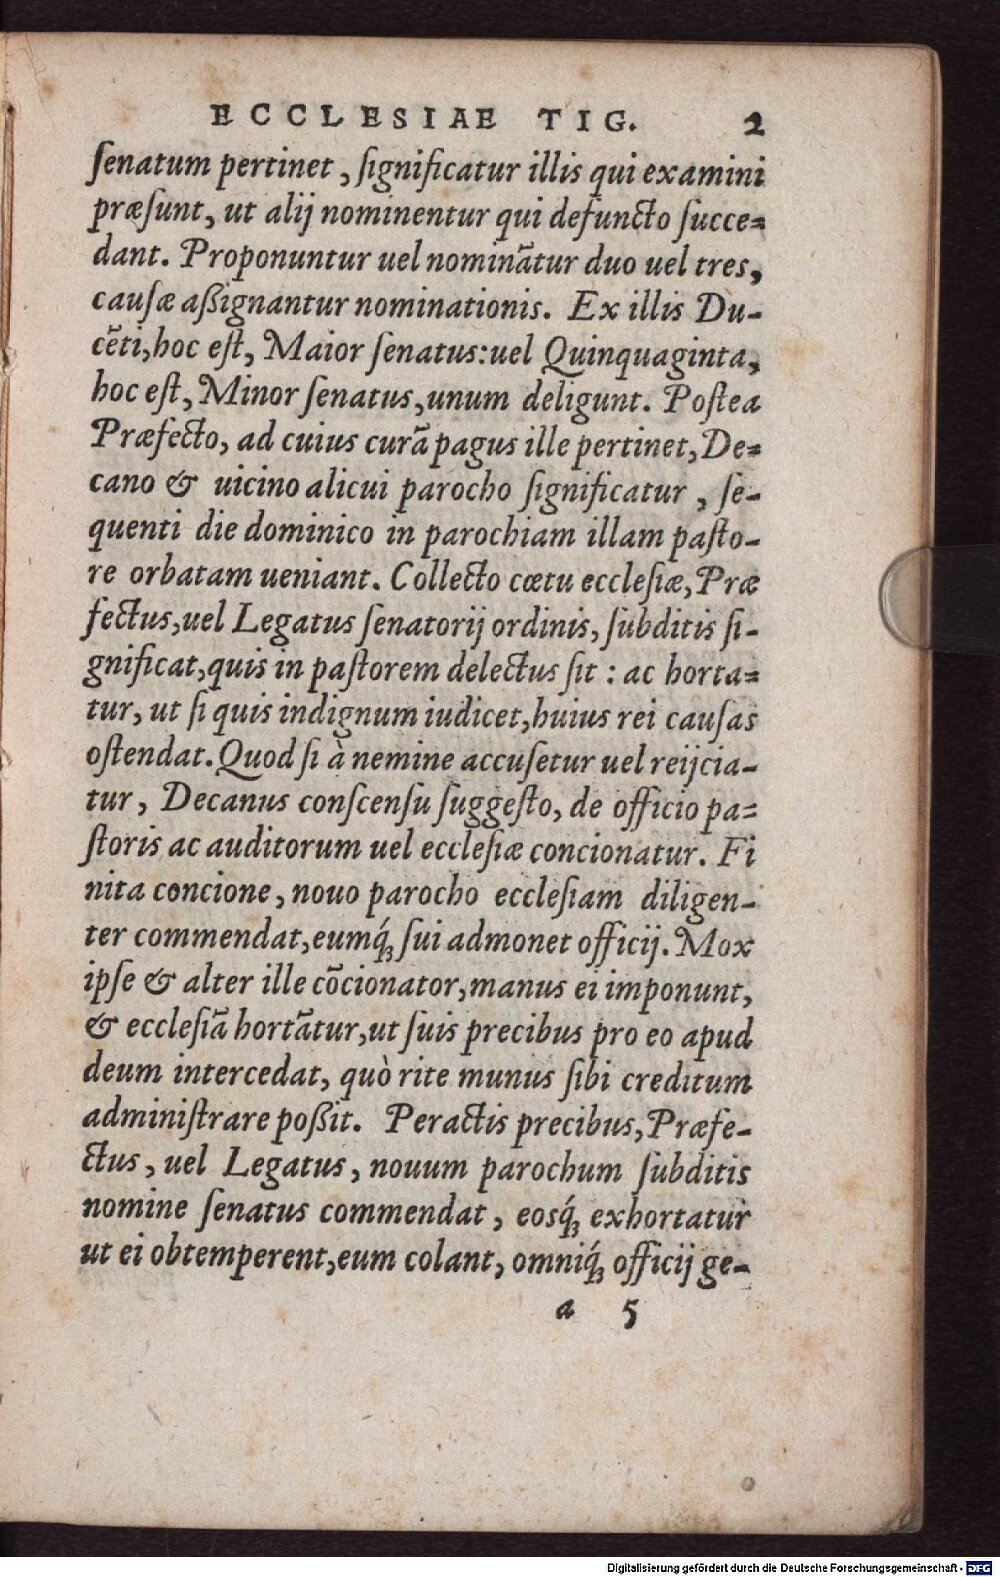 ECCLESIAE TIG. 2
ſenatum pertinet, ſignificatur illis qui examini
præſunt, ut alij nominentur qui defuncto ſucce=
dant. Proponuntur uel nominãtur duo uel tres,
cauſæ aßignantur nominationis. Ex illis Du-
cẽti, hoc eſt, Maior ſenatus: uel Quinquaginta,
hoc eſt, Minor ſenatus, unum deligunt. Poſtea
Præfecto, ad cuius curã pagus ille pertinet, De=
cano & uicino alicui parocho ſignificatur, ſe-
quenti die dominico in parochiam illam paſto-
re orbatam ueniant. Collecto cœtu eccleſiæ, Præ
fectus, uel Legatus ſenatorij ordinis, ſubditis ſi-
gnificat, quis in paſtorem delectus ſit: ac horta=
tur, ut ſi quis indignum iudicet, huius rei cauſas
oſtendat. Quod ſi à nemine accuſetur uel reijcia-
tur, Decanus conſcenſu ſuggeſto, de officio pa=
ſtoris ac auditorum uel eccleſiæ concionatur. Fi
nita concione, nouo parocho eccleſiam diligen-
ter commendat, eumq́ꝫ ſui admonet officij. Mox
ipſe & alter ille cõcionator, manus ei imponunt,
& eccleſiã hortãtur, ut ſuis precibus pro eo apud
deum intercedat, quò rite munus ſibi creditum
adminiſtrare poßit. Peractis precibus, Præfe-
ctus, uel Legatus, nouum parochum ſubditis
nomine ſenatus commendat, eosq́ꝫ exhortatur
ut ei obtemperent, eum colant, omniq́ꝫ officij ge-
a 5
Digitalisierung gefördert durch die Deutsche Forschungsgemeinschaft - DFG